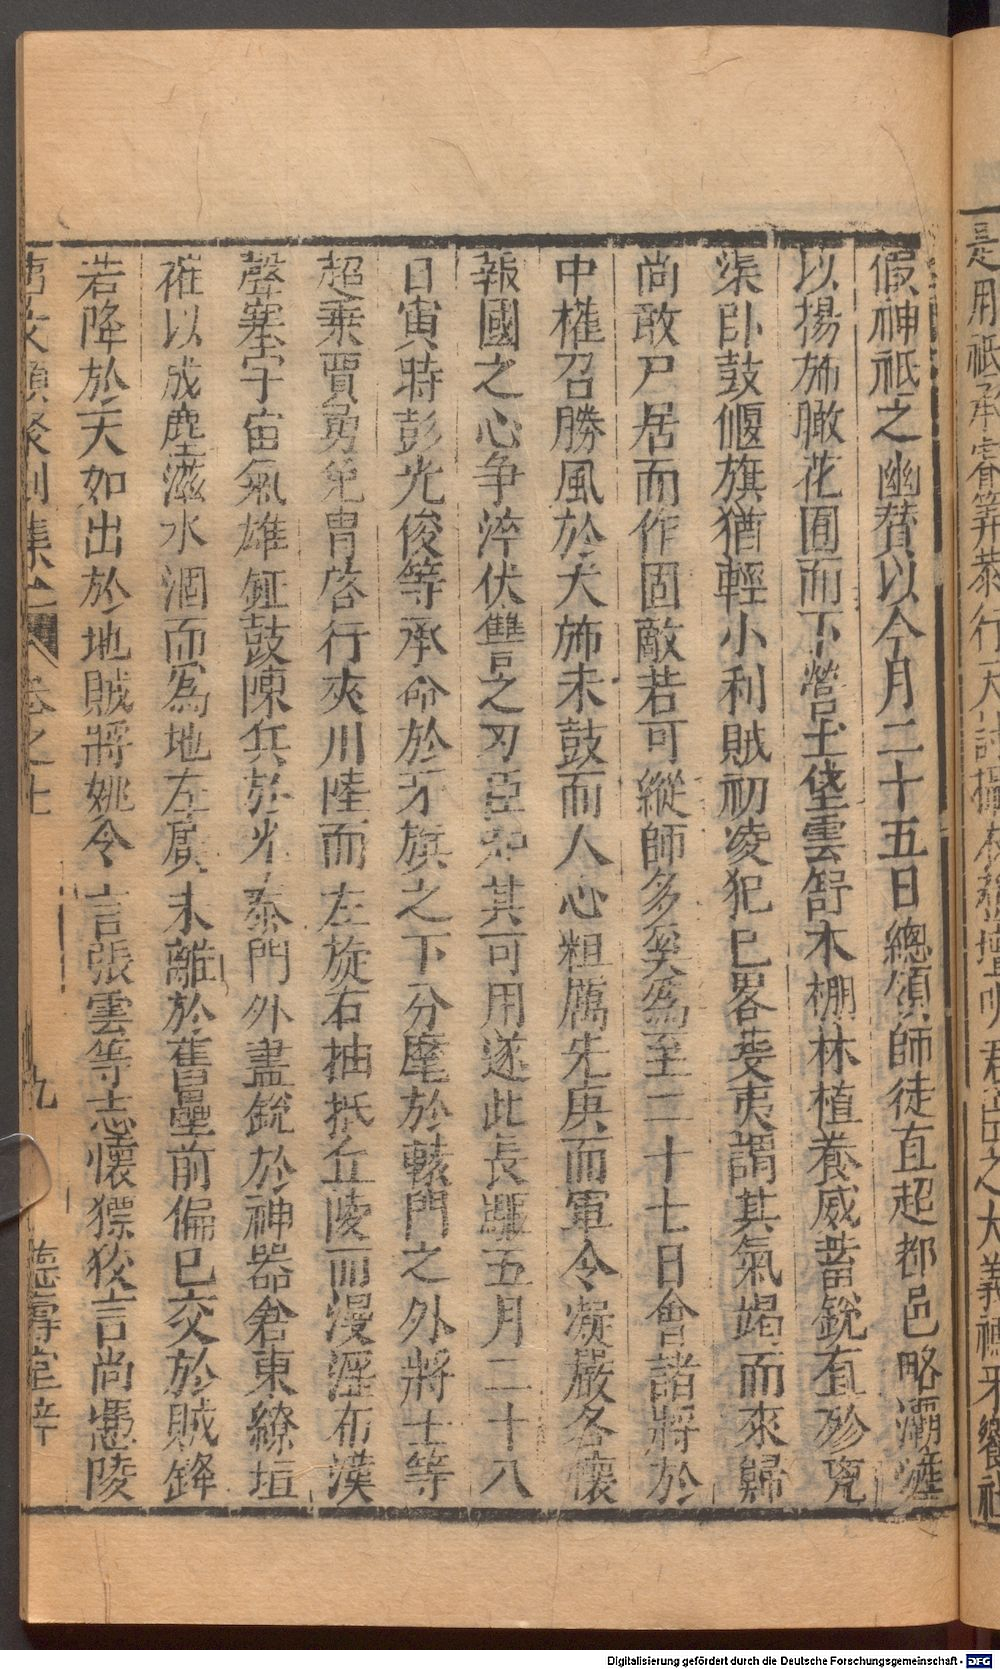 是用祗承睿筭恭行天討攝
君
之大義禡牙饗社
假神祗之幽賛以今月二十五日總領師徒直超都邑略灞滻
以揚斾瞰花囿而下營土垡雲舒木棚林植養威蓄銳直殄㓙
渠卧鼓偃旗猶輕小利賊初凌犯已畧芟夷謂其氣竭而來歸
尚敢尸居而作固敵若可縱師多奚爲至二十七日會諸將於
中權召勝風於大斾未鼓而人心粗厲先庚而軍令凝嚴各懷
報國之心争淬伏讐之刃臣知其可用遂此長驅五月二十八
日寅時彭光俊等承命於牙旗之下分麾於轅門之外將士等
超乗賈勇免胄啓行夾川陸而左旋右抽抵丘陵而漫滛布漢
聲塞宇宙氣雄鉦鼓陳兵於光泰門外盡銳於神器倉東繚垣
摧以成塵滋水涸而爲地左廣未離於舊壘前偏已交於賊鋒
若降於天如出於地賊將姚令言張雲等志懐獷狡言尚憑陵
萬文類聚別集
卷之七
九
德壽堂梓
Digitalisierung gefördert durch die Deutsche Forschungsgemeinschaft - DFG